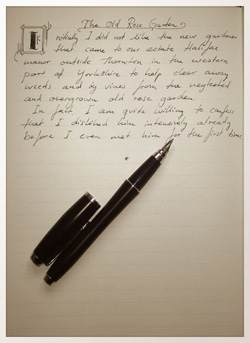 The Old Rose Garden
Initially I did not like the new gardener
that came to our estate Halifax
manor outside Thornton in the western
part of Yorkshire to help clear away
weeds and vines from the neglected
and overgrown old rose garden.
In fact I am quite willing to confess
that I disliked him intensively already
before I even met him for the first time